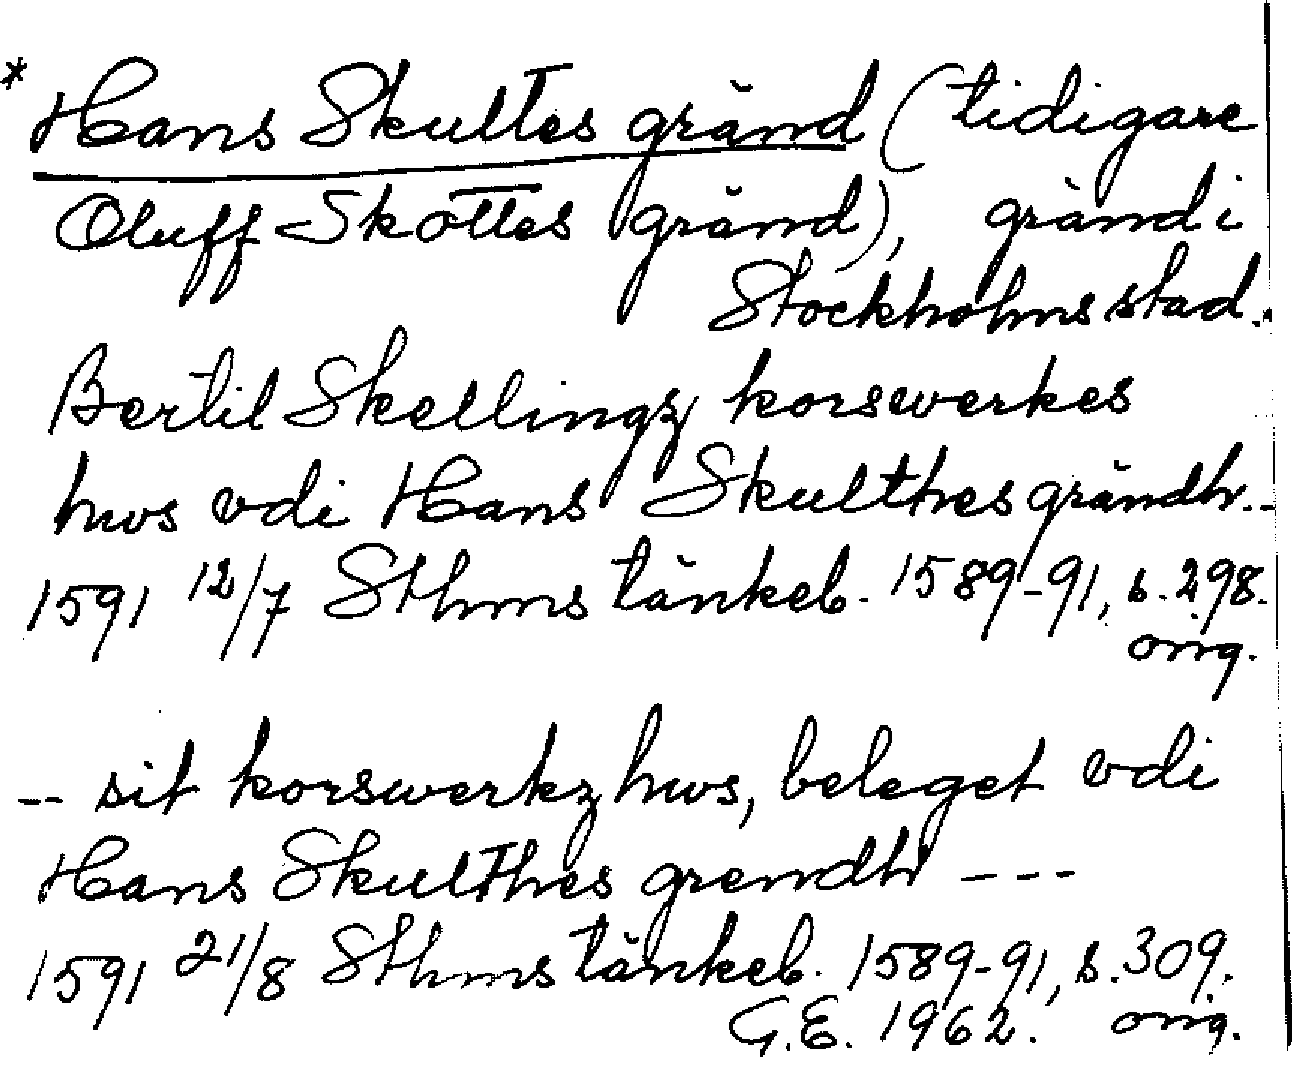 * Hans Skultes gränd (tidigare
Oluff Skottes gränd), gränd i
Stockholms stad.
Bertil Skellingz korswerkes
hws vdi Hans Skulthes grändh --
1591 12/7 Sthms tänkeb. 1589-91, s. 298.
orig.
-- sit korswerkz hws, beleget vdi
Hans Skulthes grendh ---
1591 21/8 Sthms tänkeb. 1589-91, s. 309.
G.E. 1962. orig.